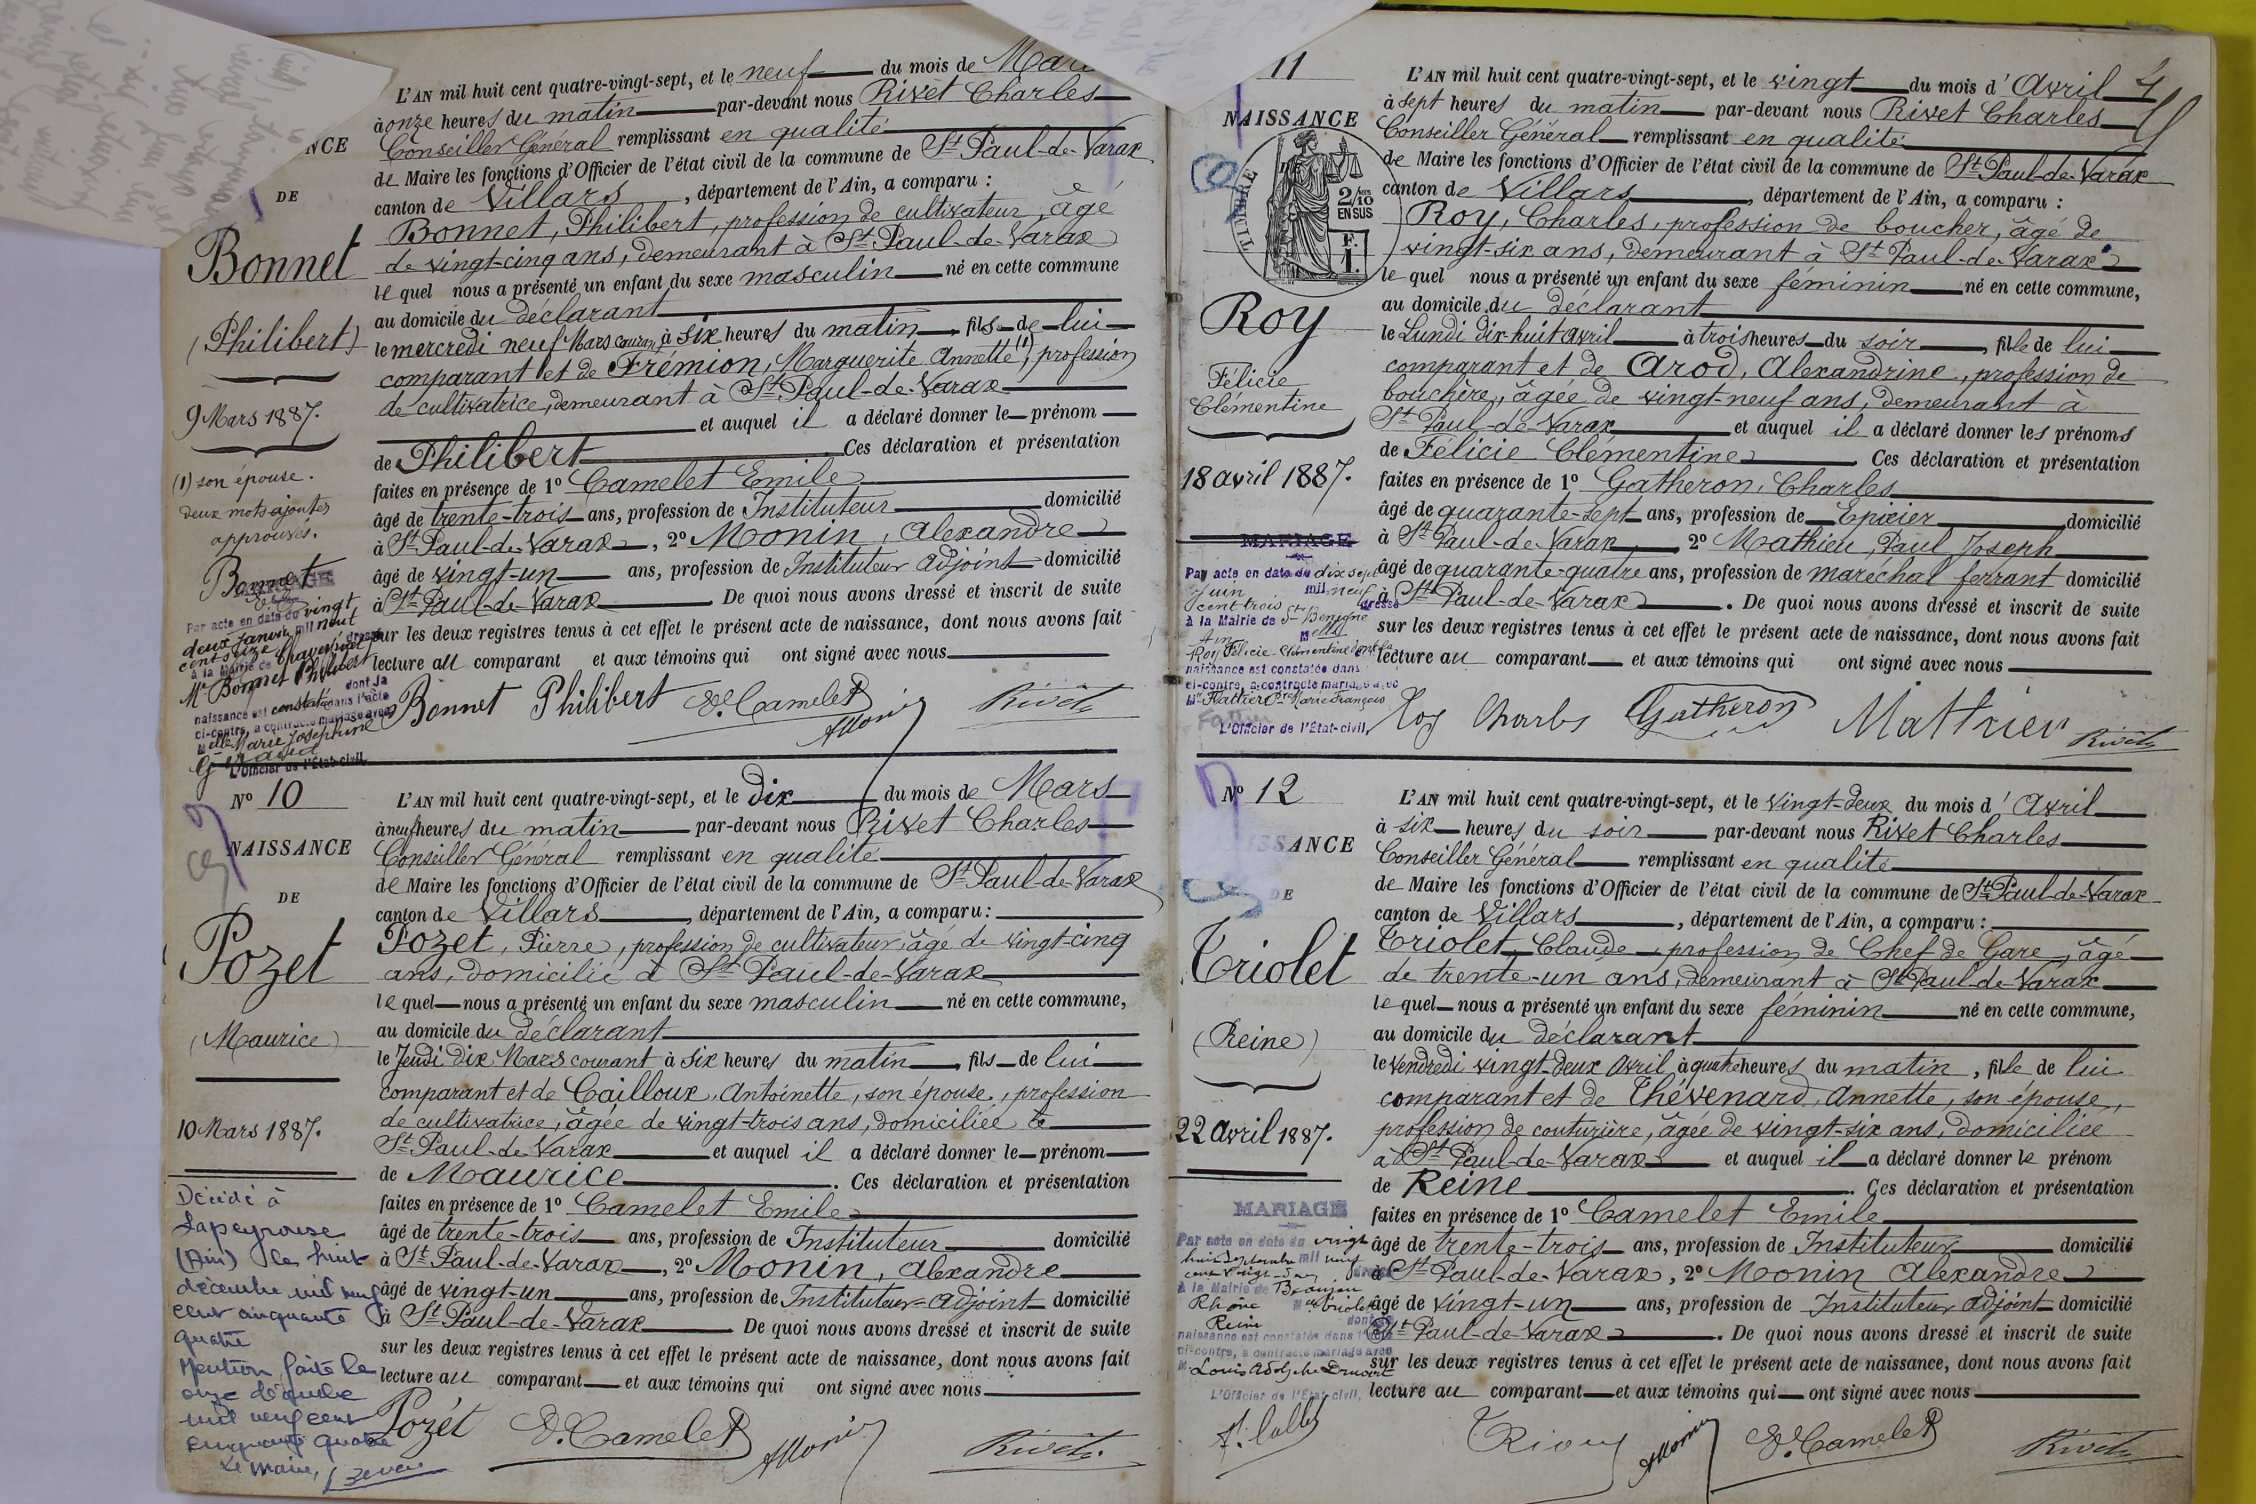 NCE
DE
Bonnet
(Philibert)
9 Mars 1887.
(1) son épouse.
deux mots ajoutés
approuvés.
Bonnet
Par acte en date du vingt
deux Janvier mil neuf
cent seize dressé
à la Mairie de
Mr Bonnet Philibert
dont la
naissance est constatée dans l'acte
ci-contre, a contracté mariage avec
Melle Marie Joséphine
L'Officier de l'État-civil,
L'AN mil huit cent quatre-vingt-sept, et le neuf du mois de Mars
à onze heures du matin par-devant nous Rivet Charles
Conseiller Général remplissant en qualité
de Maire les fonctions d'Officier de l'état civil de la commune de St Paul-de-Varax
canton de Villars, département de l'Ain, a comparu :
Bonnet, Philibert, profession de cultivateur, âgé
de vingt-cinq ans, demeurant à St Paul-de-Varax
lequel nous a présenté un enfant du sexe masculin né en cette commune
au domicile du déclarant
le mercredi neuf Mars courant à six heures du matin, fils de lui
comparant et de Frémion, Marguerite Annette (1), profession
de cultivatrice, demeurant à St Paul-de-Varax
et auquel il a déclaré donner le prénom
de Philibert Ces déclaration et présentation
faites en présence de 1º Camelet Emile
âgé de trente-trois ans, profession de Instituteur domicilié
à St Paul-de-Varax, 2º Monin, Alexandre
âgé de vingt-un ans, profession de Instituteur adjoint domicilié
à St Paul-de-Varax De quoi nous avons dressé et inscrit de suite
sur les deux registres tenus à cet effet le présent acte de naissance, dont nous avons fait
lecture au comparant et aux témoins qui ont signé avec nous
Bonnet Philibert E. Camelet AMonin Rivet
Nº 10
NAISSANCE
DE
Pozet
(Maurice)
10 Mars 1887.
Décédé à
Lapeyrouse
(Ain) le huit
décembre mil neuf
cent cinquante
quatre
Mention faite le
onze décembre
mil neuf cent
cinquante quatre
Le Maire,
L'AN mil huit cent quatre-vingt-sept, et le dix du mois de Mars
à neuf heures du matin par-devant nous Rivet Charles
Conseiller Général remplissant en qualité
de Maire les fonctions d'Officier de l'état civil de la commune de St Paul-de-Varax
canton de Villars, département de l'Ain, a comparu :
Pozet, Pierre, profession de cultivateur, âgé de vingt-cinq
ans, domicilié à St Paul-de-Varax
lequel nous a présenté un enfant du sexe masculin né en cette commune,
au domicile du déclarant
le Jeudi dix Mars courant à six heures du matin, fils de lui
comparant et de Cailloux, Antoinette, son épouse, profession
de cultivatrice, âgée de vingt-trois ans, domiciliée à
St Paul-de-Varax et auquel il a déclaré donner le prénom
de Maurice. Ces déclaration et présentation
faites en présence de 1º Camelet Emile
âgé de trente-trois ans, profession de Instituteur domicilié
à St Paul-de-Varax, 2º Monin, Alexandre
âgé de vingt-un ans, profession de Instituteur-adjoint domicilié
à St Paul-de-Varax De quoi nous avons dressé et inscrit de suite
sur les deux registres tenus à cet effet le présent acte de naissance, dont nous avons fait
lecture au comparant et aux témoins qui ont signé avec nous
Pozet E. Camelet AMonin Rivet
11
NAISSANCE
TIMBRE
2/10
EN SUS
F.
1.
Roy
Félicie
Clémentine
18 avril 1887.
MARIAGE
Par acte en date du dix sept
Juin mil neuf
cent trois dressé
à la Mairie de St Bénigne
Ain Melle
Roy Félicie Clémentine dont la
naissance est constatée dans
ci-contre, a contracté mariage avec
L'Officier de l'État-civil,
4
L'AN mil huit cent quatre-vingt-sept, et le vingt du mois d'Avril
à sept heures du matin par-devant nous Rivet Charles
Conseiller Général remplissant en qualité
de Maire les fonctions d'Officier de l'état civil de la commune de St Paul-de-Varax
canton de Villars, département de l'Ain, a comparu :
Roy, Charles, profession de boucher, âgé de
vingt-six ans, demeurant à St Paul-de-Varax
lequel nous a présenté un enfant du sexe féminin né en cette commune,
au domicile du déclarant
le Lundi dix-huit avril à trois heures du soir, fille de lui
comparant et de Arod, Alexandrine, profession de
bouchère, âgée de vingt-neuf ans, demeurant à
St Paul-de-Varax et auquel il a déclaré donner les prénoms
de Félicie Clémentine Ces déclaration et présentation
faites en présence de 1º Gatheron, Charles
âgé de quarante-sept ans, profession de Epicier domicilié
à St Paul-de-Varax, 2º Mathieu, Paul Joseph
âgé de quarante-quatre ans, profession de maréchal ferrant domicilié
à St Paul-de-Varax. De quoi nous avons dressé et inscrit de suite
sur les deux registres tenus à cet effet le présent acte de naissance, dont nous avons fait
lecture au comparant et aux témoins qui ont signé avec nous
Roy Charles Gatheron Mathieu Rivet
Nº 12
ISSANCE
DE
Triolet
(Reine)
22 avril 1887.
MARIAGE
Par acte en date du vingt
huit Septembre mil neuf
cent vingt-
à la Mairie de Beaujeu
Rhône Melle Triolet
Reine dont la
naissance est constatée dans l'acte
ci-contre, a contracté mariage avec
M. Louis Adolphe
L'Officier de l'État-civil,
L'AN mil huit cent quatre-vingt-sept, et le vingt-deux du mois d'Avril
à six heures du soir par-devant nous Rivet Charles
Conseiller Général remplissant en qualité
de Maire les fonctions d'Officier de l'état civil de la commune de St Paul-de-Varax
canton de Villars, département de l'Ain, a comparu :
Triolet Claude, profession de Chef de Gare, âgé
de trente-un ans, demeurant à St Paul-de-Varax
lequel nous a présenté un enfant du sexe féminin né en cette commune,
au domicile du déclarant
le Vendredi vingt-deux Avril à quatre heures du matin, fille de lui
comparant et de Thévenard, Annette, son épouse,
profession de couturière, âgée de vingt-six ans, domiciliée
à St Paul-de-Varax et auquel il a déclaré donner le prénom
de Reine Ces déclaration et présentation
faites en présence de 1º Camelet Emile
âgé de trente-trois ans, profession de Instituteur domicilié
à St Paul-de-Varax, 2º Monin Alexandre
âgé de vingt-un ans, profession de Instituteur adjoint domicilié
à St Paul-de-Varax. De quoi nous avons dressé et inscrit de suite
sur les deux registres tenus à cet effet le présent acte de naissance, dont nous avons fait
lecture au comparant et aux témoins qui ont signé avec nous
AMonin E. Camelet Rivet